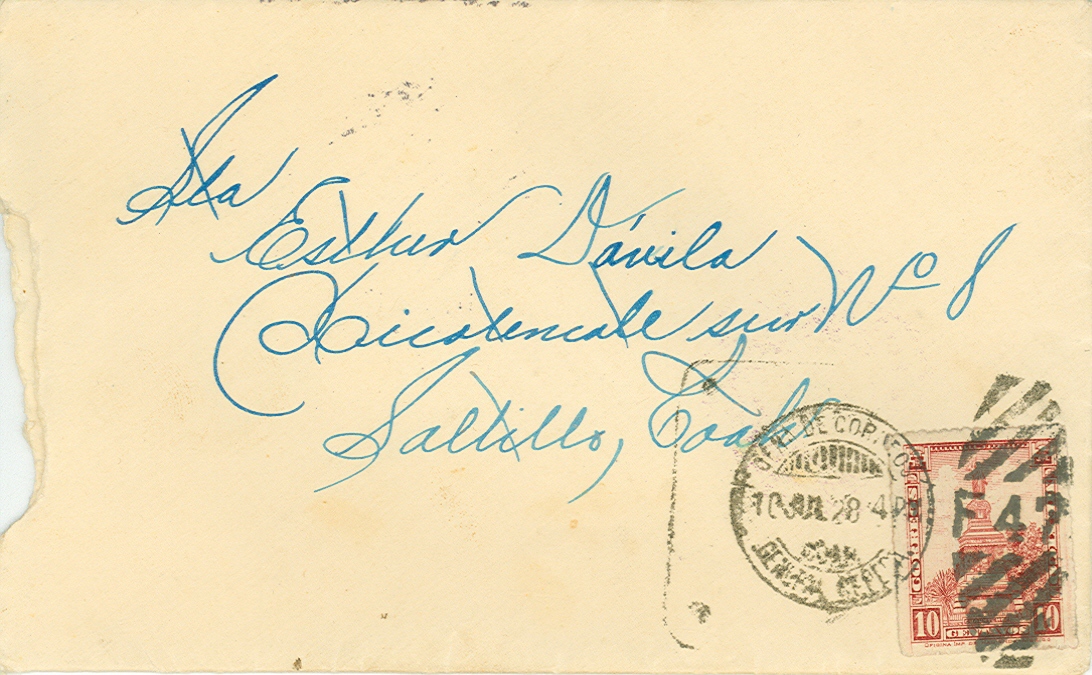 Sta
Esther Dávila
Xicotencatl sur No 8
Saltillo, Coah
DE CORREOS
10 JUL 28 4 PM
COAH.
CORREOS
F 47
10 CENTAVOS 10
OFICINA IMP.